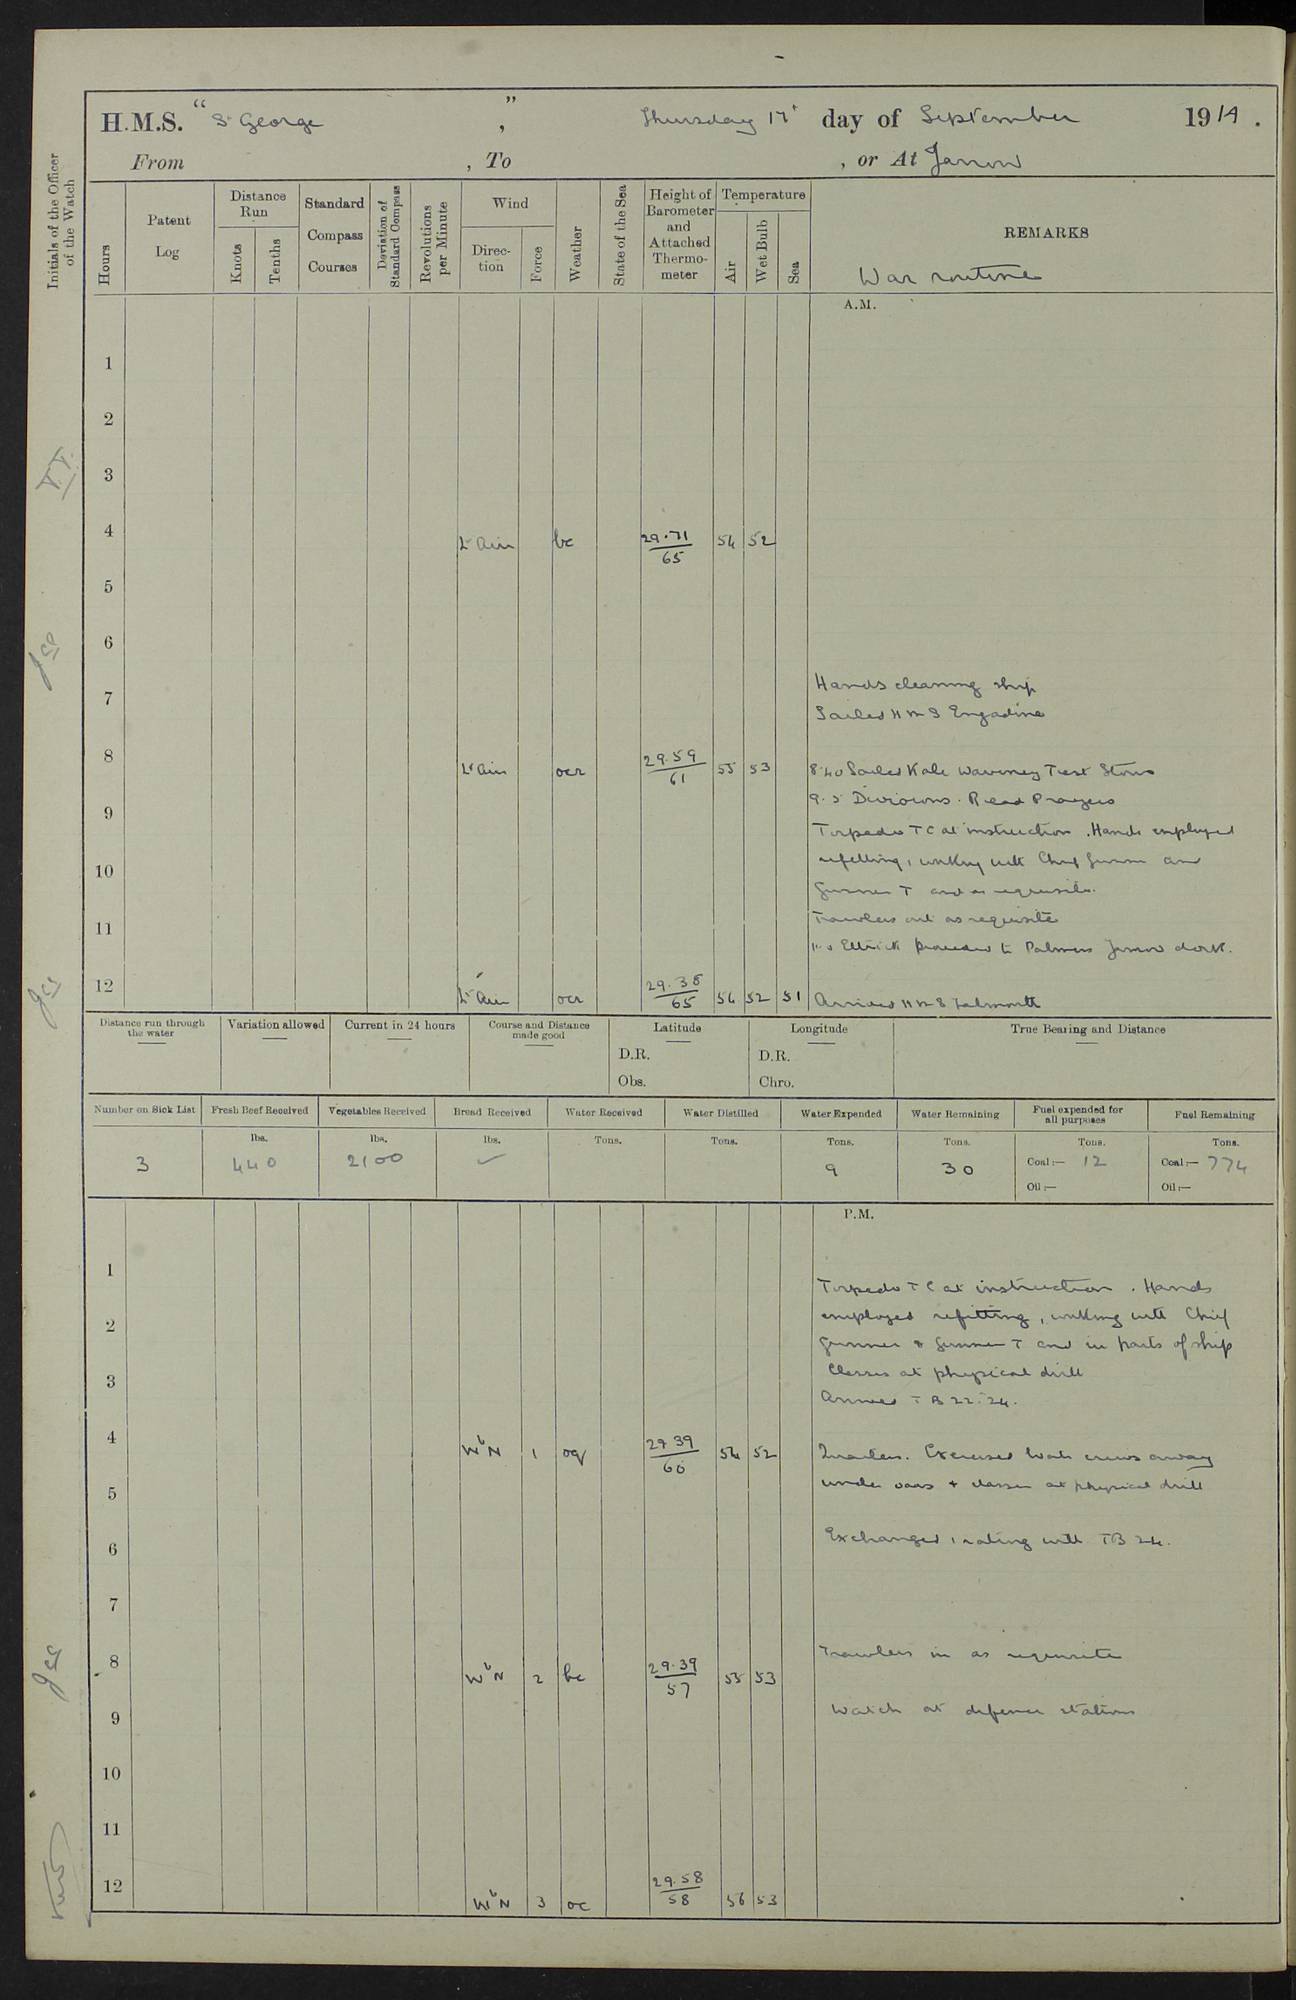 H.M.S. "St George", Thursday 17th day of September 1914.
From , To , or At Jarrow
Initials of the Officer of the Watch
Hours
Patent Log
Distance Run
Knots
Tenths
Standard Compass Courses
Deviation of Standard Compass
Revolutions per Minute
Wind
Direction
Force
Weather
State of the Sea
Height of Barometer and Attached Thermometer
Temperature
Air
Wet Bulb
Sea
REMARKS
War routine
A.M.
1
2
3
4 Lt Airs bc 29.71/65 54 52
5
6
Hands cleaning ship
7
Sailed HMS Engadine
8 Lt airs ocr 29.59/61 55 53
8.40 Sailed Kale Waveney Test Stour
9.5 Divisions. Read Prayers
9
Torpedo TC at instruction. Hands employed
refitting, working with Chief Gunner and
10
Gunner T and as requisite.
Trawlers out as requisite
11
Ettrick proceeded to Palmers Jarrow dock.
12 Lt Airs ocr 29.38/65 54 52 51 Arrived HMS Falmouth
Distance run through the water
Variation allowed
Current in 24 hours
Course and Distance made good
Latitude
D.R.
Obs.
Longitude
D.R.
Chro.
True Bearing and Distance
Number on Sick List
Fresh Beef Received
Vegetables Received
Bread Received
Water Received
Water Distilled
Water Expended
Water Remaining
Fuel expended for all purposes
Fuel Remaining
lbs. lbs. lbs. Tons. Tons. Tons. Tons. Tons. Tons.
3 440 2100 9 30 Coal:— 12 Coal:— 774
Oil:— Oil:—
P.M.
1
Torpedo TC at instruction. Hands
employed refitting, working with Chief
2
Gunner & Gunner T and in parts of ship
Classes at physical drill
3
Arrived TB 22. 24.
4 WbN 1 oq 29.39/60 54 52 Quarters. Exercised boats crews away
under oars + classes at physical drill
5
Exchanged 1 rating with TB 24.
6
7
Trawlers in as requisite
8 WbN 2 bc 29.39/57 55 53
Watch at defence stations
9
10
11
12 WbN 3 oc 29.58/58 56 53